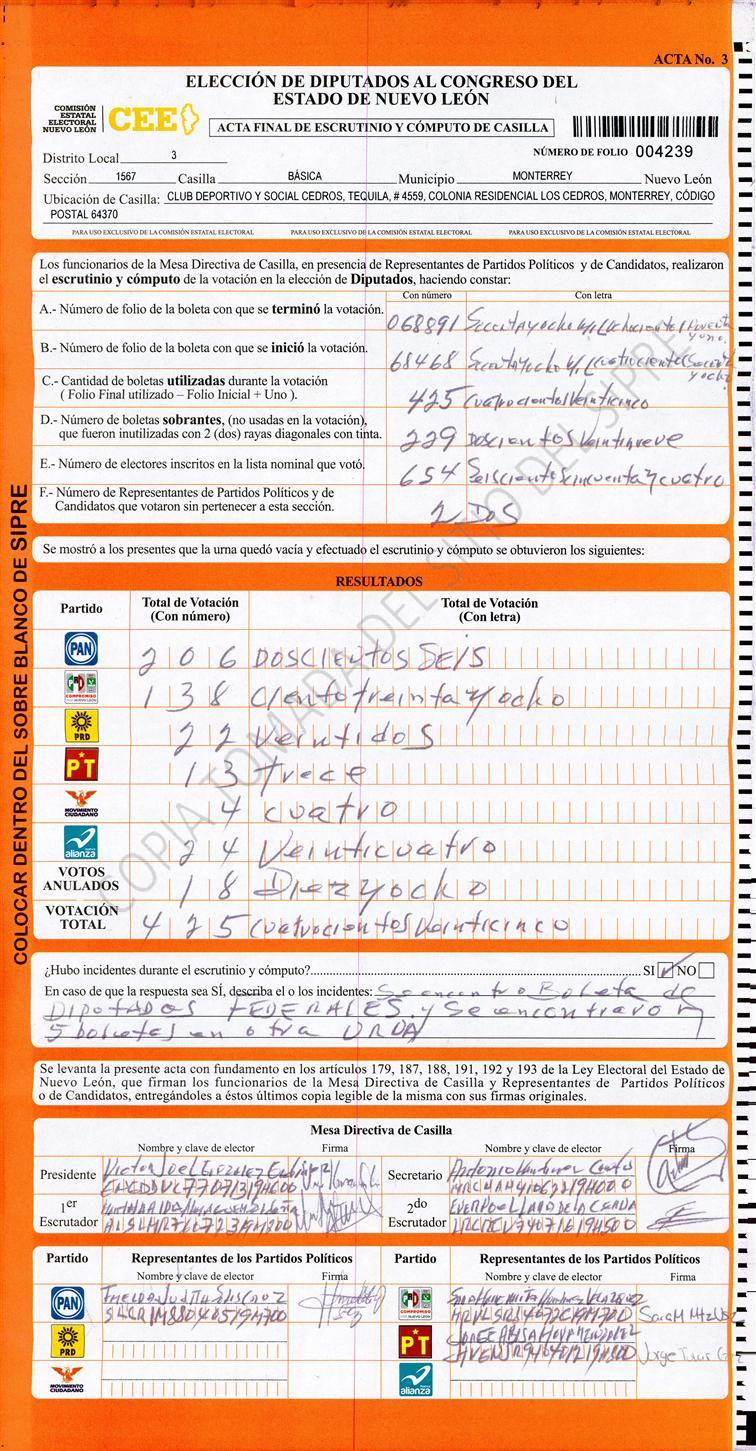 ACTA No. 3
ELECCIÓN DE DIPUTADOS AL CONGRESO DEL
ESTADO DE NUEVO LEÓN
COMISIÓN
ESTATAL
ELECTORAL
NUEVO LEÓN
CEE
ACTA FINAL DE ESCRUTINIO Y CÓMPUTO DE CASILLA
Distrito Local 3
NÚMERO DE FOLIO 004239
Sección 1567 Casilla BÁSICA Municipio MONTERREY Nuevo León
Ubicación de Casilla: CLUB DEPORTIVO Y SOCIAL CEDROS, TEQUILA, # 4559, COLONIA RESIDENCIAL LOS CEDROS, MONTERREY, CÓDIGO
POSTAL 64370
PARA USO EXCLUSIVO DE LA COMISIÓN ESTATAL ELECTORAL PARA USO EXCLUSIVO DE LA COMISIÓN ESTATAL ELECTORAL PARA USO EXCLUSIVO DE LA COMISIÓN ESTATAL ELECTORAL
Los funcionarios de la Mesa Directiva de Casilla, en presencia de Representantes de Partidos Políticos y de Candidatos, realizaron
el escrutinio y cómputo de la votación en la elección de Diputados, haciendo constar:
Con número Con letra
A.- Número de folio de la boleta con que se terminó la votación.
068891
B.- Número de folio de la boleta con que se inició la votación.
68468
C.- Cantidad de boletas utilizadas durante la votación
( Folio Final utilizado – Folio Inicial + Uno ).
425 Cuatrocientos Veinticinco
D.- Número de boletas sobrantes, (no usadas en la votación),
que fueron inutilizadas con 2 (dos) rayas diagonales con tinta.
229 Doscientos Veintinueve
E.- Número de electores inscritos en la lista nominal que votó.
654 Seiscientos cincuenta y cuatro
F.- Número de Representantes de Partidos Políticos y de
Candidatos que votaron sin pertenecer a esta sección.
2 DOS
COLOCAR DENTRO DEL SOBRE BLANCO DE SIPRE
COPIA TOMADA DEL SITIO DEL SIPRE
Se mostró a los presentes que la urna quedó vacía y efectuado el escrutinio y cómputo se obtuvieron los siguientes:
RESULTADOS
Partido Total de Votación (Con número) Total de Votación (Con letra)
PAN 206 DOSCIENTOS SEIS
COMPROMISO 138 Ciento treinta y ocho
PRD 22 Veintidos
PT 13 trece
MOVIMIENTO CIUDADANO 4 cuatro
alianza 24 Veinticuatro
VOTOS ANULADOS 18 Diez y ocho
VOTACIÓN TOTAL 425 Cuatrocientos Veinticinco
¿Hubo incidentes durante el escrutinio y cómputo? SI NO
En caso de que la respuesta sea SÍ, describa el o los incidentes: Se encontro Boleta de
DIPUTADOS FEDERALES y Se encontraron
5 boletas en otra URNA
Se levanta la presente acta con fundamento en los artículos 179, 187, 188, 191, 192 y 193 de la Ley Electoral del Estado de
Nuevo León, que firman los funcionarios de la Mesa Directiva de Casilla y Representantes de Partidos Políticos
o de Candidatos, entregándoles a éstos últimos copia legible de la misma con sus firmas originales.
Mesa Directiva de Casilla
Nombre y clave de elector Firma Nombre y clave de elector Firma
Presidente
Secretario
1er
Escrutador
2do
Escrutador
Partido Representantes de los Partidos Políticos Partido Representantes de los Partidos Políticos
Nombre y clave de elector Firma Nombre y clave de elector Firma
PAN
COMPROMISO
PRD
PT
MOVIMIENTO
CIUDADANO
alianza